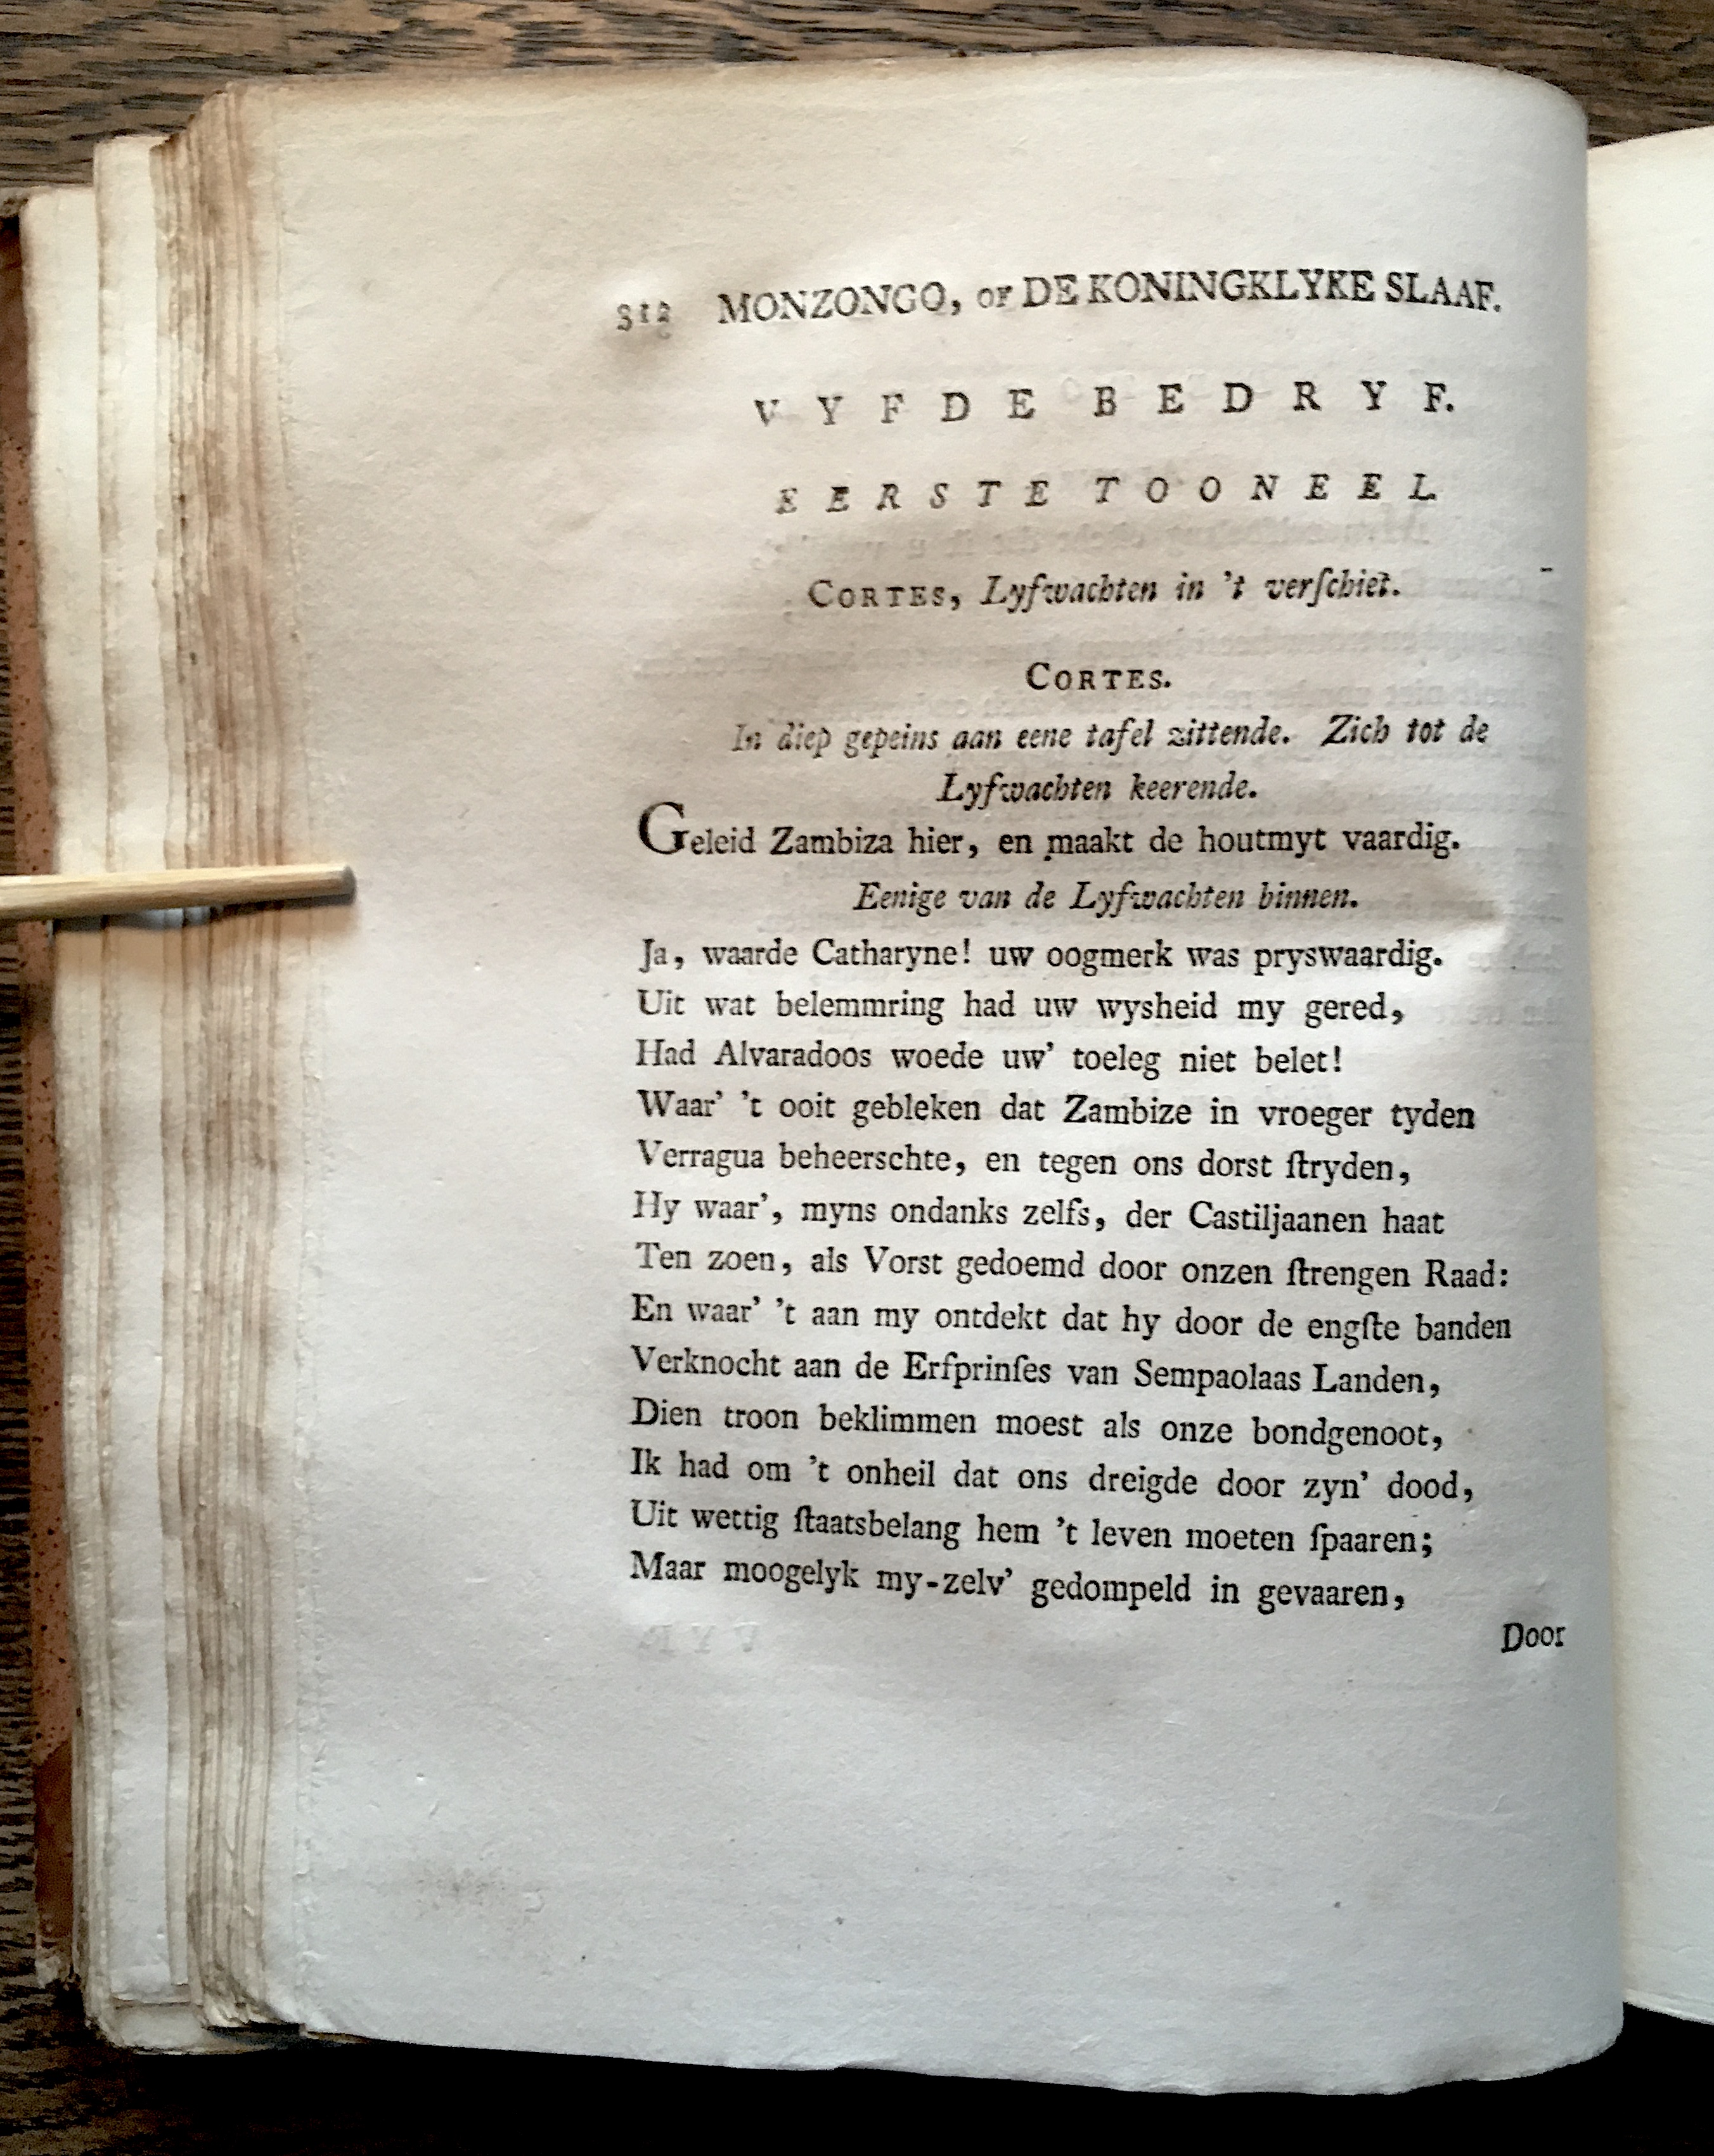 312 MONZONGO, OF DE KONINGKLYKE SLAAF.
VYFDE BEDRYF.
EERSTE TOONEEL
CORTES, Lyfwachten in 't verſchiet.
CORTES.
In diep gepeins aan eene tafel zittende. Zich tot de
Lyfwachten keerende.
Geleid Zambiza hier, en maakt de houtmyt vaardig.
Eenige van de Lyfwachten binnen.
Ja, waarde Catharyne! uw oogmerk was pryswaardig.
Uit wat belemmring had uw wysheid my gered,
Had Alvaradoos woede uw' toeleg niet belet!
Waar' 't ooit gebleken dat Zambize in vroeger tyden
Verragua beheerschte, en tegen ons dorst ſtryden,
Hy waar', myns ondanks zelfs, der Castiljaanen haat
Ten zoen, als Vorst gedoemd door onzen ſtrengen Raad:
En waar' 't aan my ontdekt dat hy door de engſte banden
Verknocht aan de Erfprinſes van Sempaolaas Landen,
Dien troon beklimmen moest als onze bondgenoot,
Ik had om 't onheil dat ons dreigde door zyn' dood,
Uit wettig ſtaatsbelang hem 't leven moeten ſpaaren;
Maar moogelyk my-zelv' gedompeld in gevaaren,
Door